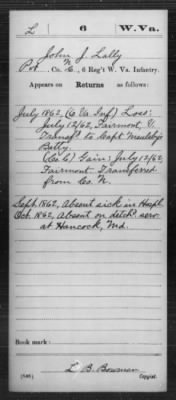 L 6 W.Va.
John J. Lally
Pvt., Co. N, 6 Reg't W. Va. Infantry.
Appears on Returns as follows:
July 1862, (6 Va. Inf.) Loss:
July 12/62, Fairmont, V.
Transf'd to Capt
Batty.
(Co. C) Gain: July 12/62,
Fairmont Transferred
from Co. N.
Sept. 1862, Absent sick in Hosp'l
Oct. 1862, Absent on detch'd serv.
at Hancock, Md.
Book mark:
L. B. Bowman
(546) Copyist.